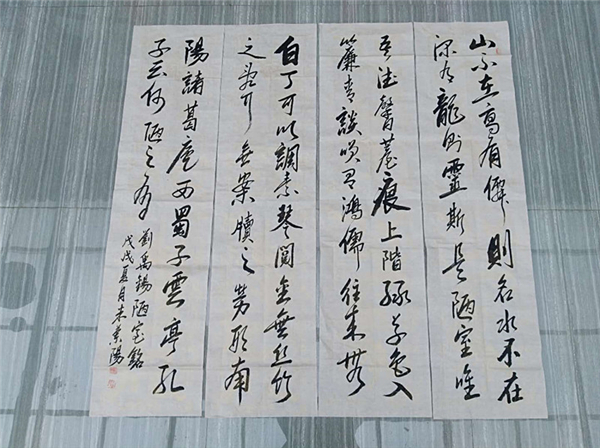 山不在高有僊則名水不在
深有龍則靈斯是陋室唯
吾德馨苔痕上階綠草色入
簾青談笑有鴻儒往來無
白丁可以調素琴閱金無丝竹
之亂耳無案牘之勞形南
陽諸葛廬西蜀子雲亭孔
子云何陋之有
劉禹錫陋室銘
戊戌夏月